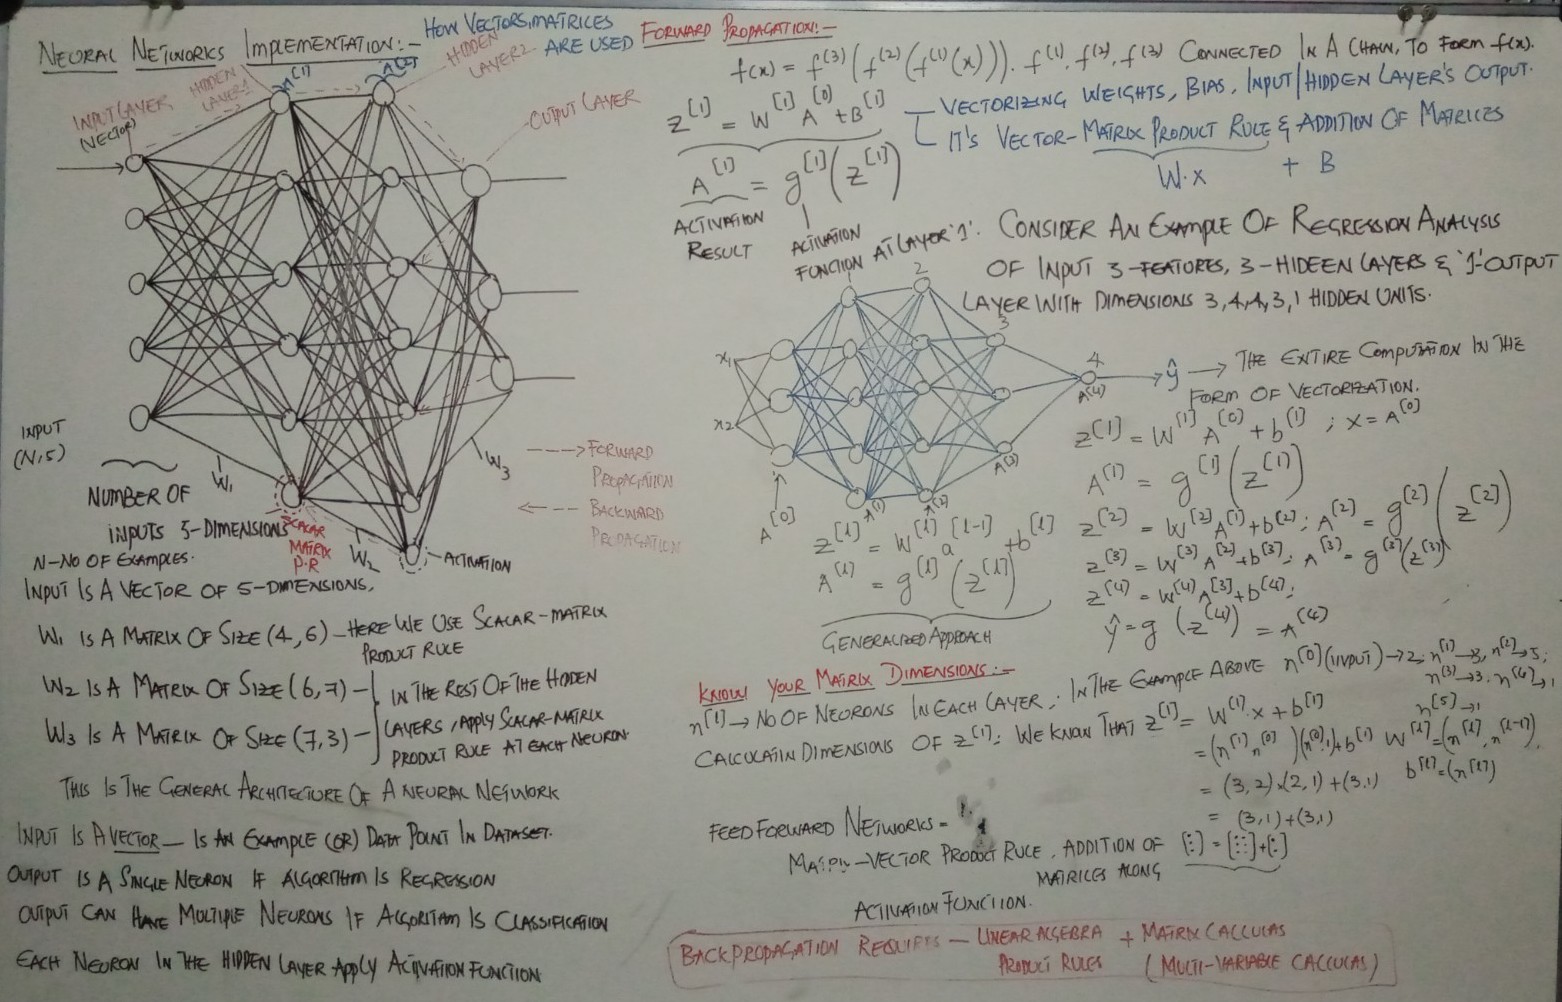 NEURAL NETWORKS IMPLEMENTATION:-
HOW VECTORS, MATRICES
ARE USED
INPUT LAYER
(VECTOR)
HIDDEN
LAYER1
A[1]
A[2]
HIDDEN
LAYER2
OUTPUT LAYER
INPUT
(N,5)
NUMBER OF
INPUTS 5-DIMENSIONS
N-NO OF EXAMPLES.
W1
SCALAR
MATRIX
P.R
W2
W3
ACTIVATION
---> FORWARD
PROPAGATION
<--- BACKWARD
PROPAGATION
INPUT IS A VECTOR OF 5-DIMENSIONS,
W1 IS A MATRIX OF SIZE (4,6) - HERE WE USE SCALAR-MATRIX
PRODUCT RULE
W2 IS A MATRIX OF SIZE (6,7) -
W3 IS A MATRIX OF SIZE (7,3) -
IN THE REST OF THE HIDDEN
LAYERS, APPLY SCALAR-MATRIX
PRODUCT RULE AT EACH NEURON.
THIS IS THE GENERAL ARCHITECTURE OF A NEURAL NETWORK
INPUT IS A VECTOR - IS AN EXAMPLE (OR) DATA POINT IN DATASET.
OUTPUT IS A SINGLE NEURON IF ALGORITHM IS REGRESSION
OUTPUT CAN HAVE MULTIPLE NEURONS IF ALGORITAM IS CLASSIFICATION
EACH NEURON IN THE HIDDEN LAYER APPLY ACTIVATION FUNCTION
FORWARD PROPAGATION:-
f(x) = f(3)(f(2)(f(1)(x))). f(1), f(2), f(3) CONNECTED IN A CHAIN, TO FORM f(x).
z[1] = W[1] A[0] + B[1]
VECTORIZING WEIGHTS, BIAS, INPUT/HIDDEN LAYER'S OUTPUT.
IT'S VECTOR-MATRIX PRODUCT RULE & ADDITION OF MATRICES
W.x + B
A[1] = g[1](z[1])
ACTIVATION
RESULT
ACTIVATION
FUNCTION AT LAYER '1'.
CONSIDER AN EXAMPLE OF REGRESSION ANALYSIS
OF INPUT 3-FEATURES, 3-HIDEEN LAYERS & '1'-OUTPUT
LAYER WITH DIMENSIONS 3,4,4,3,1 HIDDEN UNITS.
2
3
4
x1
x2
A[0]
A(1)
A(2)
A(3)
A(4)
ŷ → THE ENTIRE COMPUTATION IN THE
FORM OF VECTORIZATION.
z[1] = W[1] A[0] + b[1] ; x = A[0]
A[1] = g[1](z[1])
z[2] = W[2] A[1] + b[2]; A[2] = g[2](z[2])
z[3] = W[3] A[2] + b[3]; A[3] = g[3](z[3])
z[4] = W[4] A[3] + b[4];
ŷ = g(z(4)) = A(4)
z[l] = W[l] a[l-1] + b[l]
A[l] = g[l](z[l])
GENERALIZED APPROACH
KNOW YOUR MATRIX DIMENSIONS:-
n[l] → NO OF NEURONS IN EACH LAYER; IN THE EXAMPLE ABOVE n[0](INPUT) → 2; n[1] → 3, n[2] → 5;
n(3) → 3, n[4] → 1
n[5] → 1
CALCULATIN DIMENSIONS OF z[1]: WE KNOW THAT z[1] = W[1].x + b[1]
= (n[1], n[0])(n[0],1) + b[1]
W[l] = (n[l], n[l-1]),
= (3,2)x(2,1) + (3,1)
b[l] = (n[l])
= (3,1) + (3,1)
FEEDFORWARD NETWORKS =
MATRIX-VECTOR PRODUCT RULE, ADDITION OF
MATRICES ALONG
[:] = [::] + [:]
ACTIVATION FUNCTION.
BACKPROPAGATION REQUIRES - LINEAR ALGEBRA + MATRIX CALCULAS
PRODUCT RULES (MULTI-VARIABLE CALCULAS)